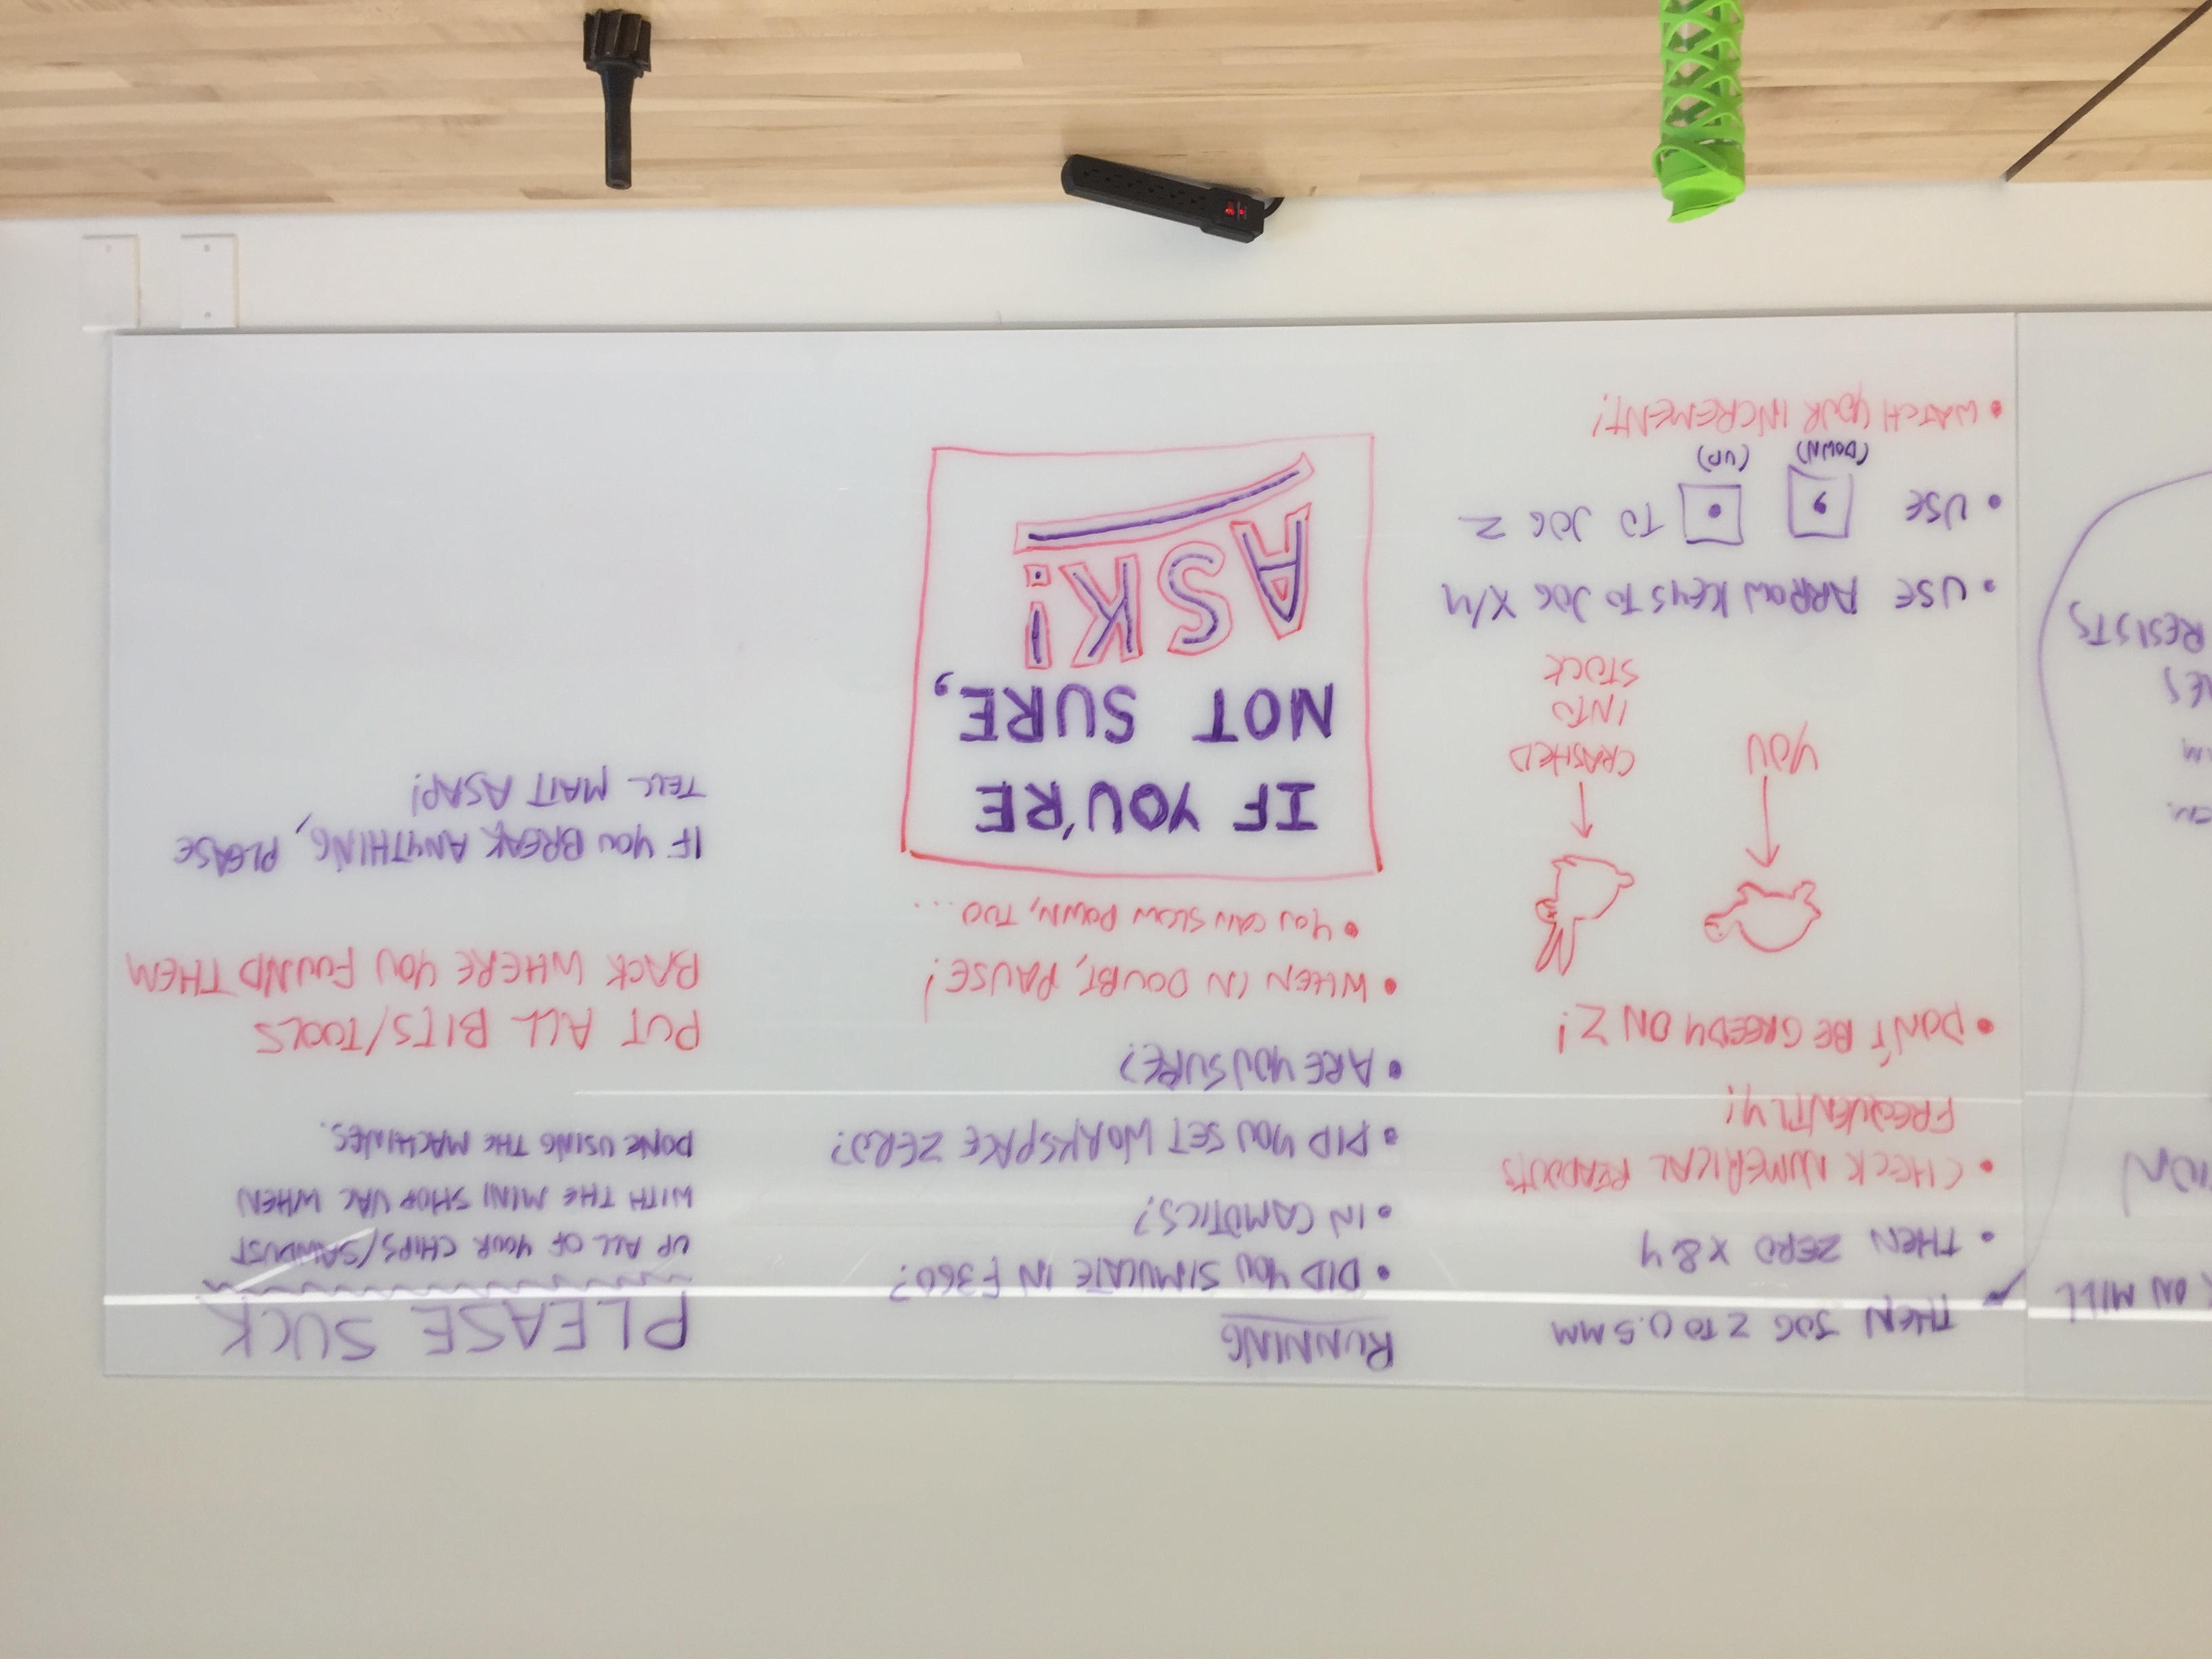 ON MILL
ION
EN.
RESISTS
THEN JOG Z TO 0.5MM
• THEN ZERO X & Y
• CHECK NUMERICAL READOUTS
FREQUENTLY!
• DON'T BE GREEDY ON Z!
YOU
CRASHED
INTO
STOCK
• USE ARROW KEYS TO JOG X/Y
• USE , . TO JOG Z
(DOWN) (UP)
• WATCH YOUR INCREMENT!
RUNNING
• DID YOU SIMULATE IN F360?
• IN CAMOTICS?
• DID YOU SET WORKSPACE ZERO?
• ARE YOU SURE?
• WHEN IN DOUBT, PAUSE!
• YOU CAN SLOW DOWN, TOO...
IF YOU'RE
NOT SURE,
ASK!
PLEASE SUCK
UP ALL OF YOUR CHIPS/SAWDUST
WITH THE MINI SHOP VAC WHEN
DONE USING THE MACHINES.
PUT ALL BITS/TOOLS
BACK WHERE YOU FOUND THEM
IF YOU BREAK ANYTHING, PLEASE
TELL MATT ASAP!